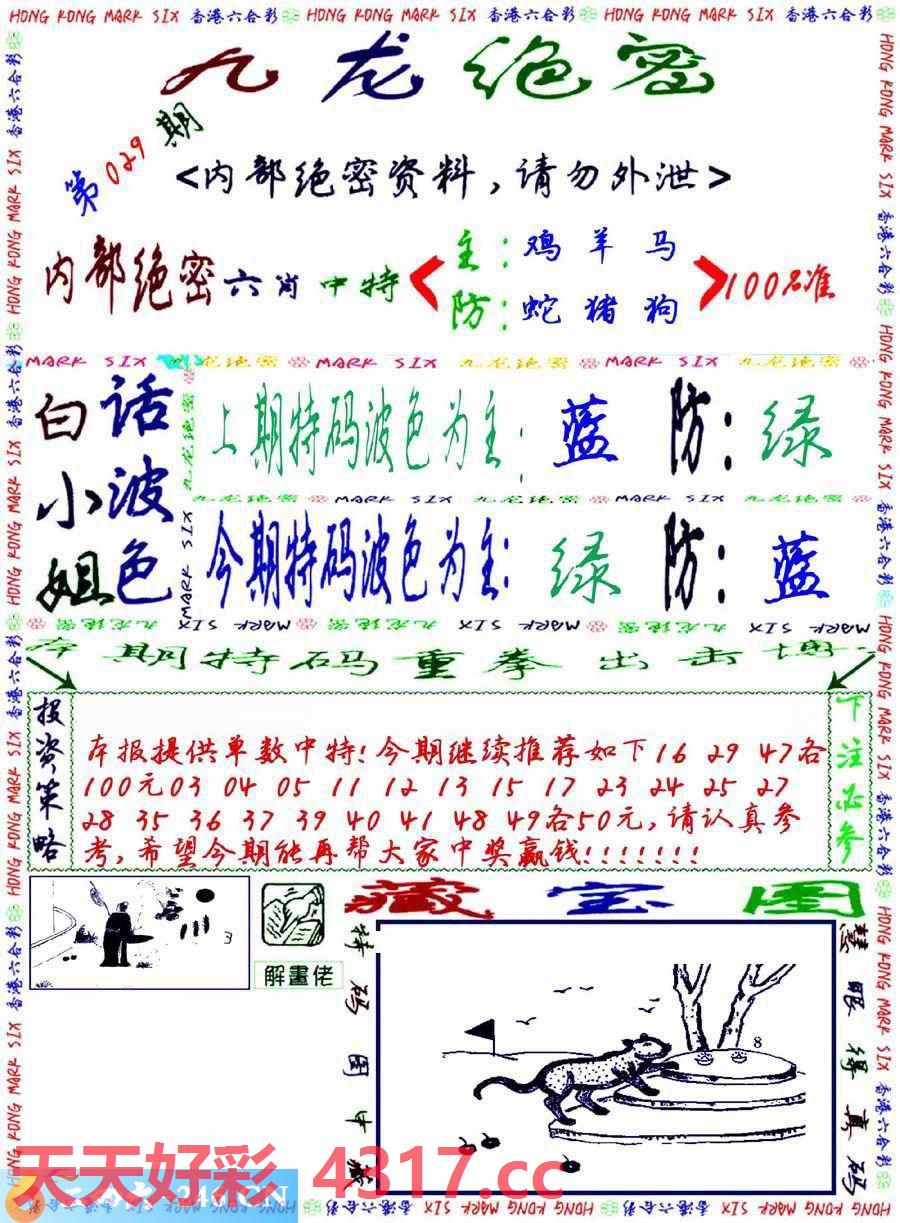 HONG KONG MARK SIX 香港六合彩 HONG KONG MARK SIX 香港六合彩 HONG KONG MARK SIX 香港六合彩
九龙绝密
第029期
<内部绝密资料,请勿外泄>
内部绝密六肖中特
主:鸡羊马
防:蛇猪狗
100%准
MARK SIX 九龙绝密 MARK SIX 九龙绝密 MARK SIX 九龙绝密
白话小波姐色
上期特码波色为主:蓝 防:绿
九龙绝密 MARK SIX 九龙绝密 MARK SIX 九龙绝密
今期特码波色为主:绿 防:蓝
九龙绝密 MARK SIX 九龙绝密 MARK SIX 九龙绝密 MARK SIX
本期特码重拳出击
投资策略
本报提供单数中特!今期继续推荐如下16 29 47各
100元03 04 05 11 12 13 15 17 23 24 25 27
28 35 36 37 39 40 41 48 49各50元,请认真参
考,希望今期能再帮大家中奖赢钱!!!!!!!
下注必参
藏宝图
解畫佬
特码图中藏
8
慧眼得真码
天天好彩 4317.cc
246.CN